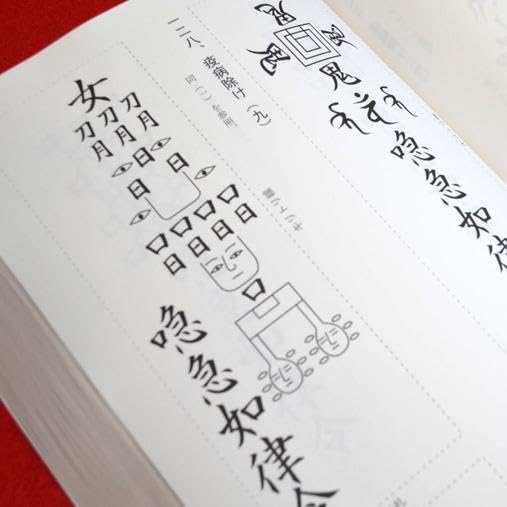 鬼
喼急如律
一二八、疫病除け(九)
同(一)を参照。
女
刀刀刀
月月月
日日
日
口口口口
日日日日
口
喼急如律令